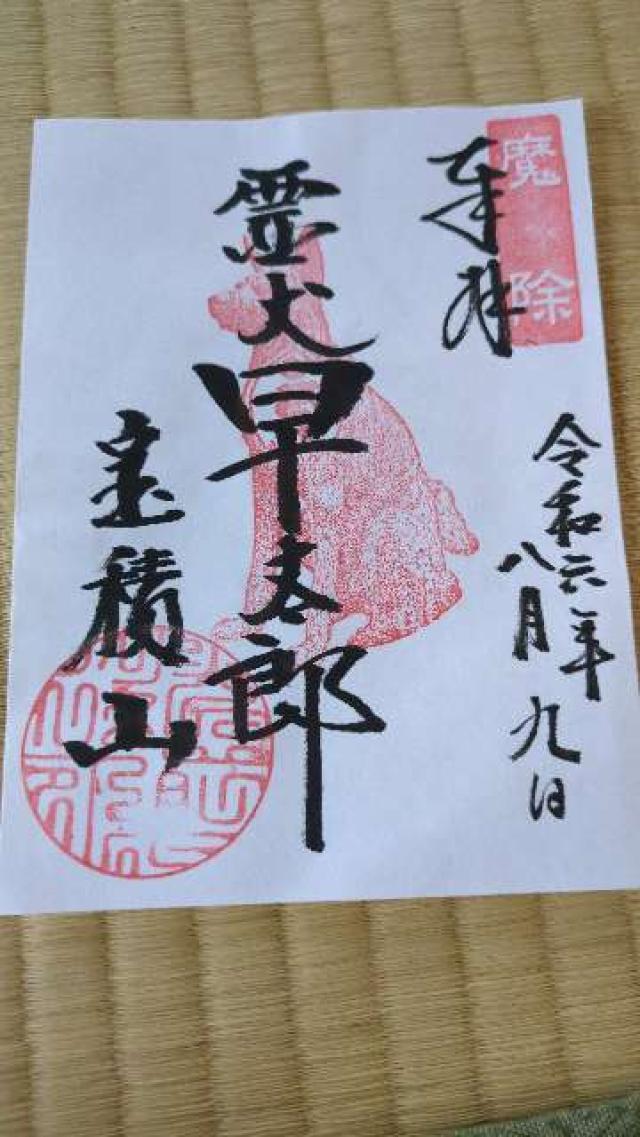 魔除
奉拝
令和六年
八月九日
霊犬早太郎
宝積山